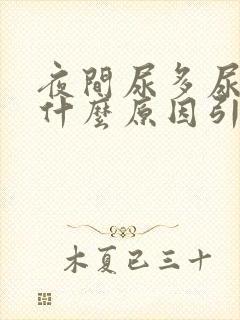 夜間尿多尿
什麼原因引
木夏已三十